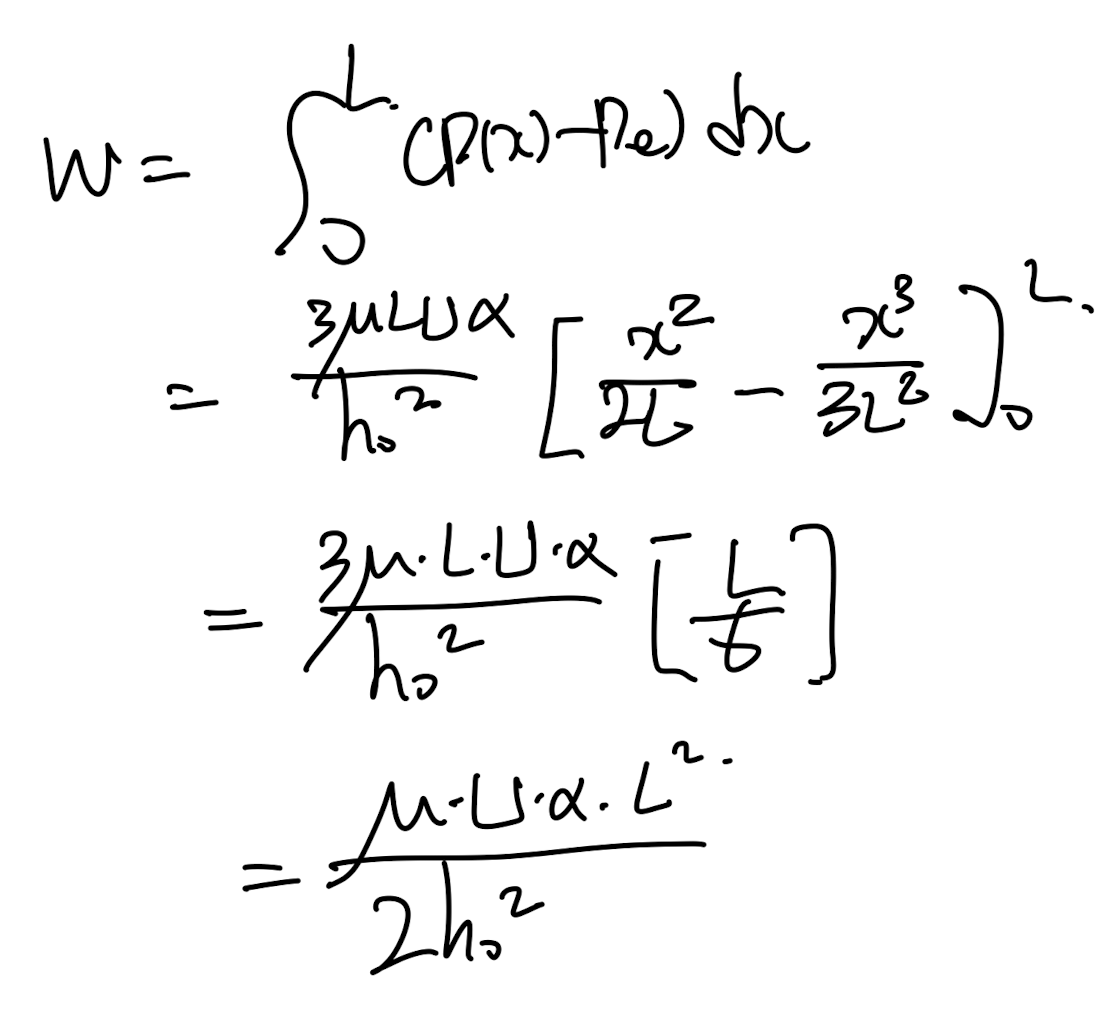 W = ∫₀ᴸ (P(x) − Pe) dx
= 3μLUα / h₀² [ x² / 2L − x³ / 3L² ]₀ᴸ.
= 3μ·L·U·α / h₀² [ L / 6 ]
= μ·U·α·L². / 2h₀²